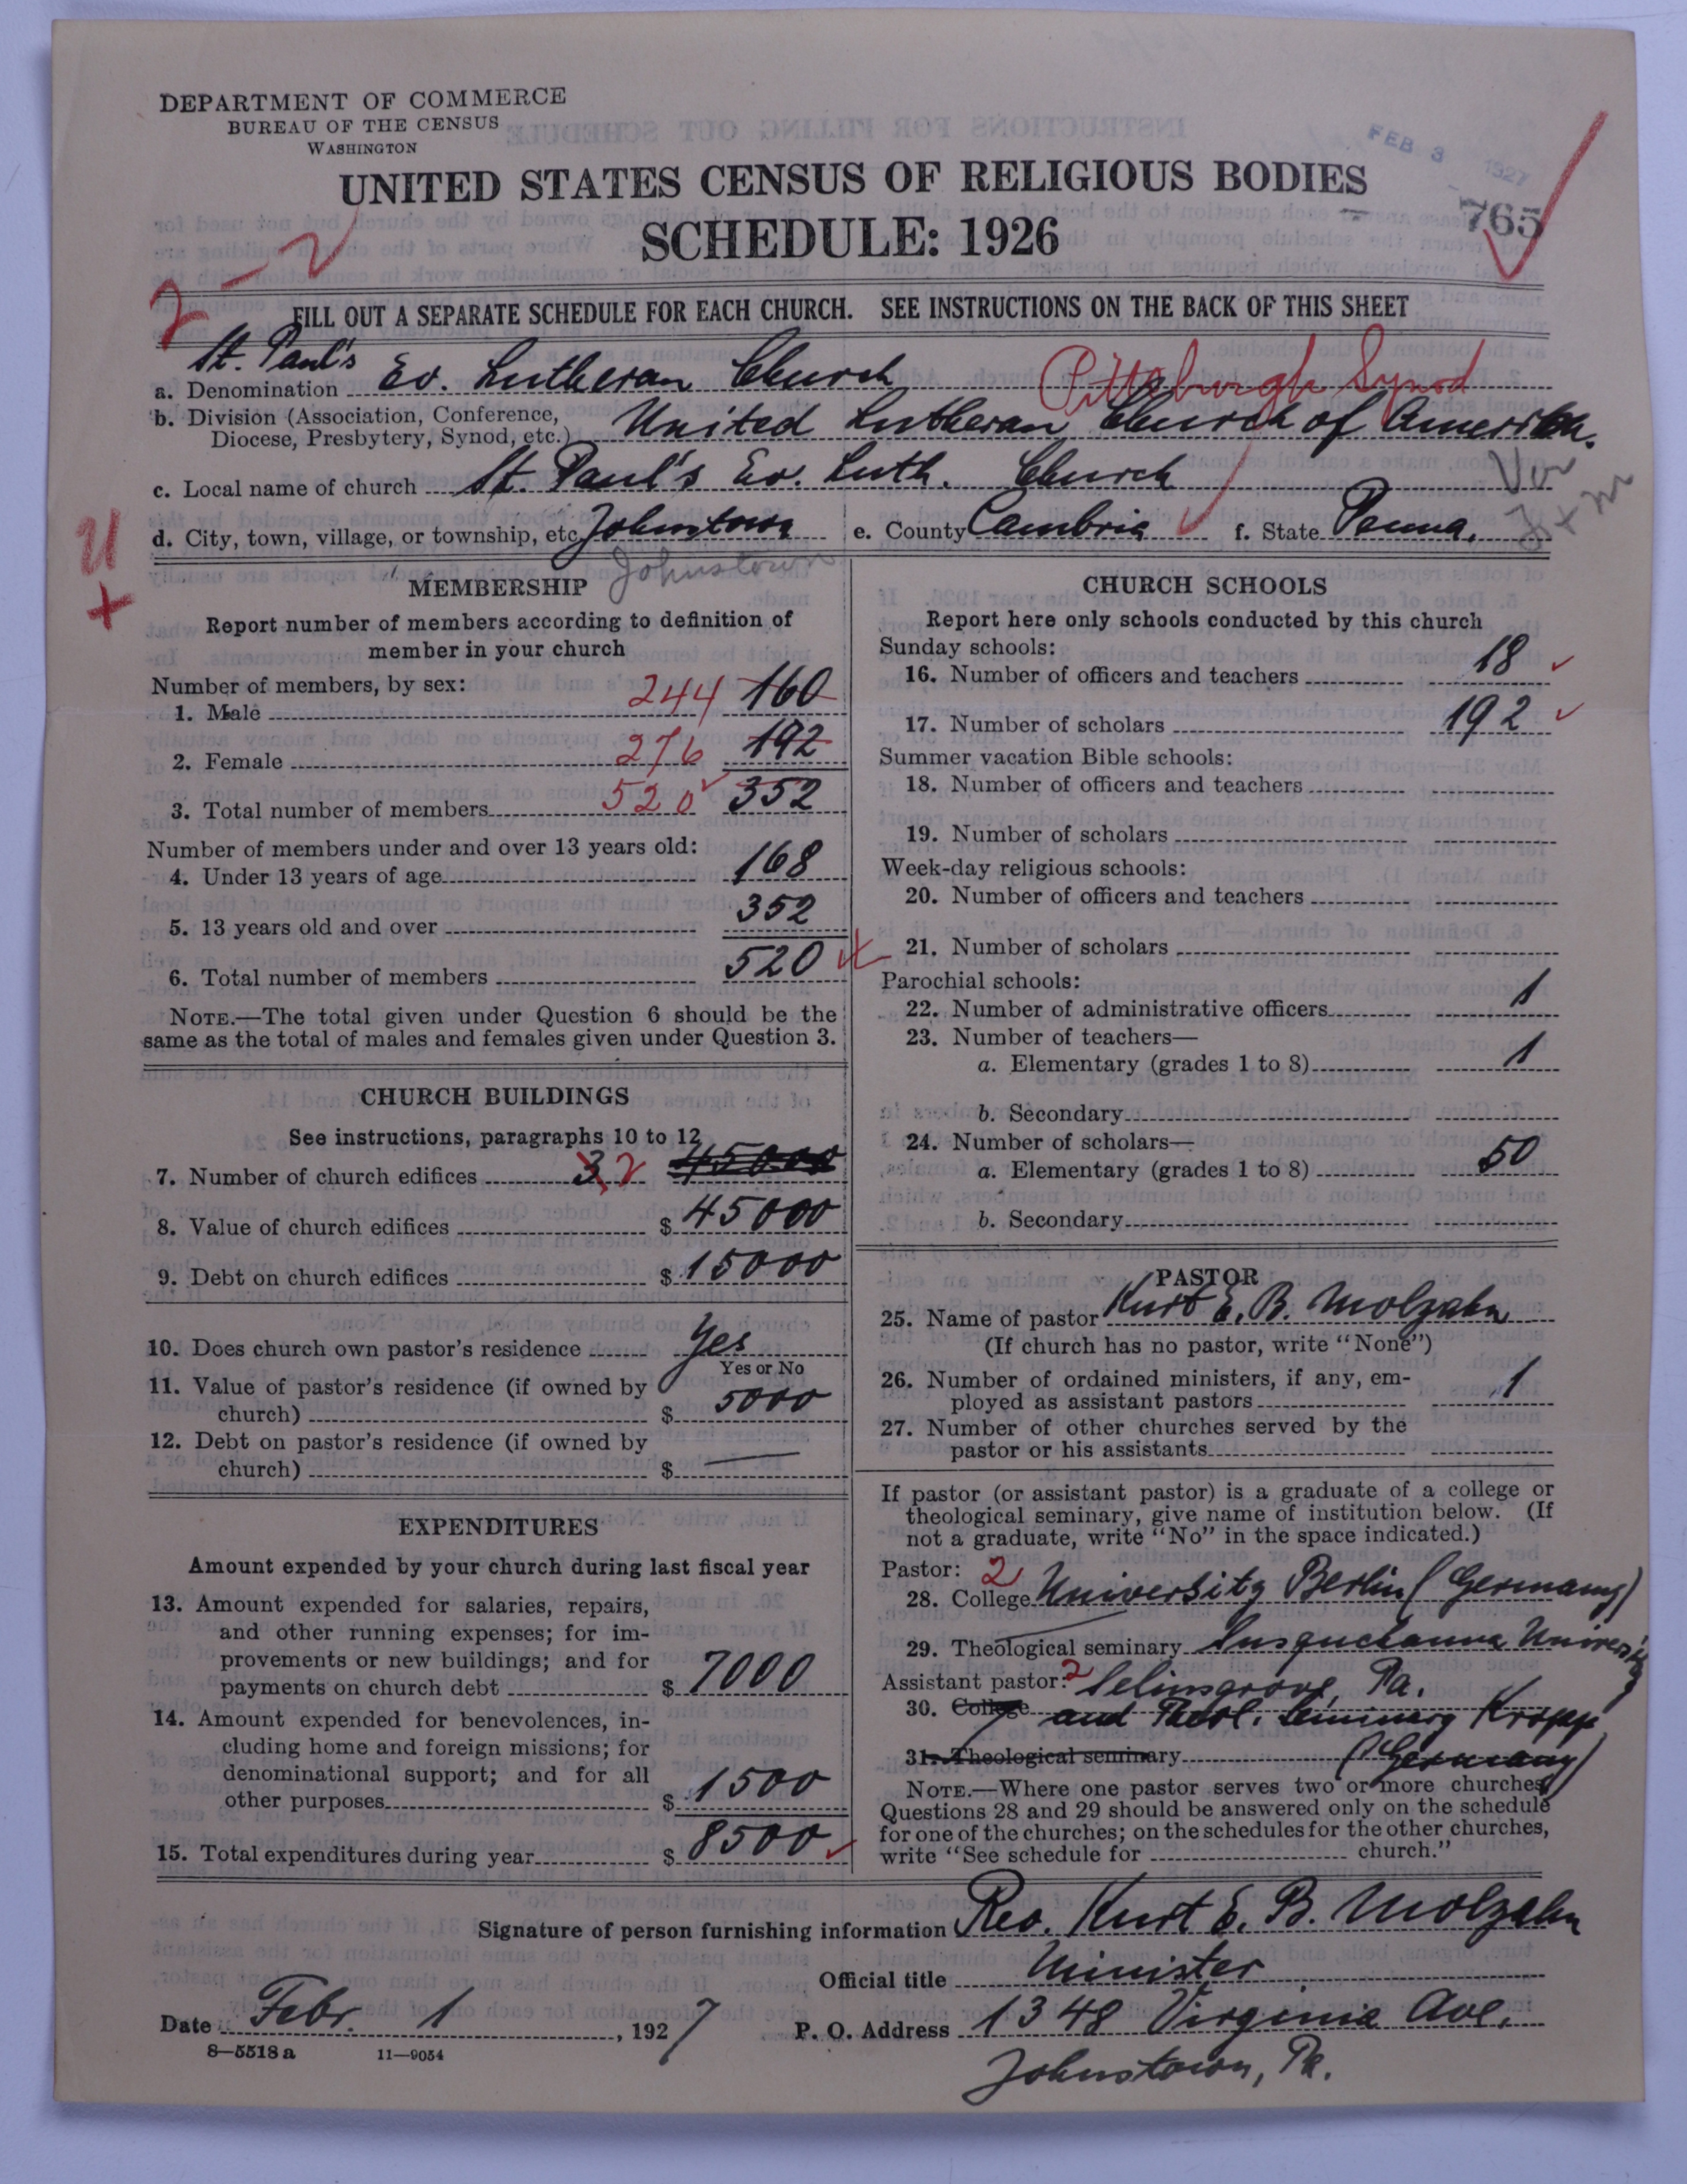 DEPARTMENT OF COMMERCE
BUREAU OF THE CENSUS
WASHINGTON
FEB 3 1927
765
UNITED STATES CENSUS OF RELIGIOUS BODIES
SCHEDULE: 1926
2-2
FILL OUT A SEPARATE SCHEDULE FOR EACH CHURCH. SEE INSTRUCTIONS ON THE BACK OF THIS SHEET
St. Paul's
a. Denomination Ev. Lutheran Church Pittsburgh Synod
b. Division (Association, Conference, Diocese, Presbytery, Synod, etc.) United Lutheran Church of America.
c. Local name of church St. Paul's Ev. Luth. Church
d. City, town, village, or township, etc. Johnstown e. County Cambria f. State Penna.
Johnstown
MEMBERSHIP
Report number of members according to definition of
member in your church
Number of members, by sex:
1. Male 244 160
2. Female 276 192
3. Total number of members 520 352
Number of members under and over 13 years old:
4. Under 13 years of age 168
5. 13 years old and over 352
6. Total number of members 520
NOTE.—The total given under Question 6 should be the
same as the total of males and females given under Question 3.
CHURCH BUILDINGS
See instructions, paragraphs 10 to 12
7. Number of church edifices 3 2 45000
8. Value of church edifices $ 45000
9. Debt on church edifices $ 15000
10. Does church own pastor's residence Yes
Yes or No
11. Value of pastor's residence (if owned by
church) $ 5000
12. Debt on pastor's residence (if owned by
church) $ —
EXPENDITURES
Amount expended by your church during last fiscal year
13. Amount expended for salaries, repairs,
and other running expenses; for im-
provements or new buildings; and for
payments on church debt $ 7000
14. Amount expended for benevolences, in-
cluding home and foreign missions; for
denominational support; and for all
other purposes $ 1500
15. Total expenditures during year $ 8500
CHURCH SCHOOLS
Report here only schools conducted by this church
Sunday schools:
16. Number of officers and teachers 18
17. Number of scholars 192
Summer vacation Bible schools:
18. Number of officers and teachers
19. Number of scholars
Week-day religious schools:
20. Number of officers and teachers
21. Number of scholars
Parochial schools:
22. Number of administrative officers 1
23. Number of teachers—
a. Elementary (grades 1 to 8) 1
b. Secondary
24. Number of scholars—
a. Elementary (grades 1 to 8) 50
b. Secondary
PASTOR
25. Name of pastor Kurt E. B. Molzahn
(If church has no pastor, write "None")
26. Number of ordained ministers, if any, em-
ployed as assistant pastors 1
27. Number of other churches served by the
pastor or his assistants
If pastor (or assistant pastor) is a graduate of a college or
theological seminary, give name of institution below. (If
not a graduate, write "No" in the space indicated.)
Pastor: 2
28. College University Berlin (Germany)
29. Theological seminary Susquehanna University
Assistant pastor: 2 Selinsgrove, Pa.
30. College and Theol. Seminary Kropp
31. Theological seminary (Germany)
NOTE.—Where one pastor serves two or more churches,
Questions 28 and 29 should be answered only on the schedule
for one of the churches; on the schedules for the other churches,
write "See schedule for church."
Signature of person furnishing information Rev. Kurt E. B. Molzahn
Official title Minister
Date Febr. 1, 1927 P. O. Address 1348 Virginia Ave.
Johnstown, Pa.
8—5518 a 11—9054